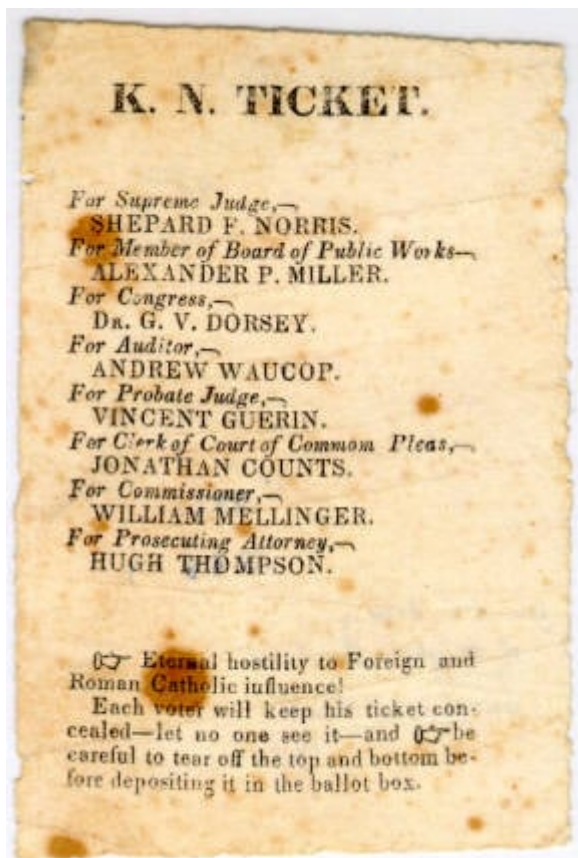 K. N. TICKET.
For Supreme Judge,
SHEPARD F. NORRIS.
For Member of Board of Public Works
ALEXANDER P. MILLER.
For Congress,
DR. G. V. DORSEY.
For Auditor,
ANDREW WAUCOP.
For Probate Judge,
VINCENT GUERIN.
For Clerk of Court of Commom Pleas,
JONATHAN COUNTS.
For Commissioner,
WILLIAM MELLINGER.
For Prosecuting Attorney,
HUGH THOMPSON.
☞ Eternal hostility to Foreign and
Roman Catholic influence!
Each voter will keep his ticket con-
cealed—let no one see it—and ☞ be
careful to tear off the top and bottom be-
fore depositing it in the ballot box.